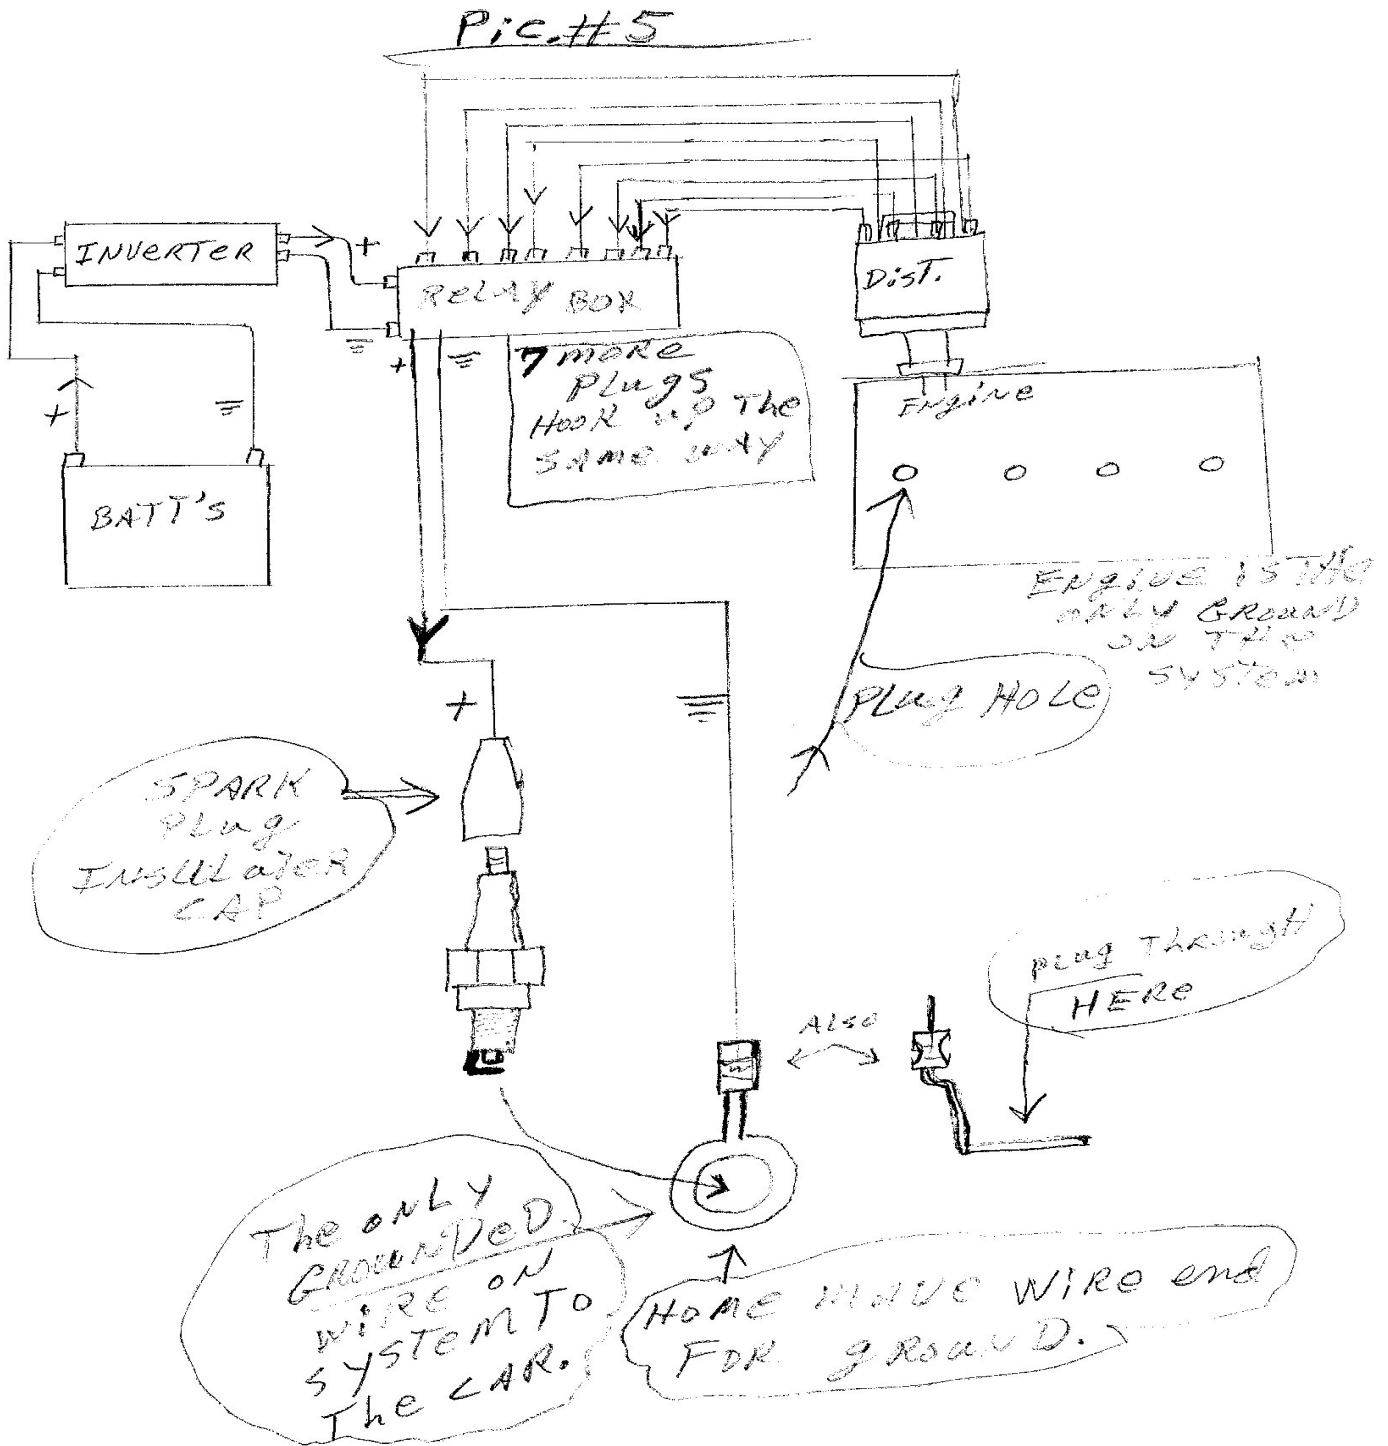 Pic.#5
INVERTER
+
RELAY BOX
DIST.
+
7 MORE
PLUGS
HOOK UP THE
SAME WAY
ENgiNe
+
BATT'S
ENgiNE IS THE
ONLY GROUND
ON THE
SYSTEM
PLUg HOLe
+
SPARK
PLug
INSULateR
CAP
PLUg THROUgH
HERe
ALSO
The ONLY
GROUNDeD
WIRE ON
SYSTEM TO
The CAR.
HOME MAUE WIRE end
FOR gROUND.